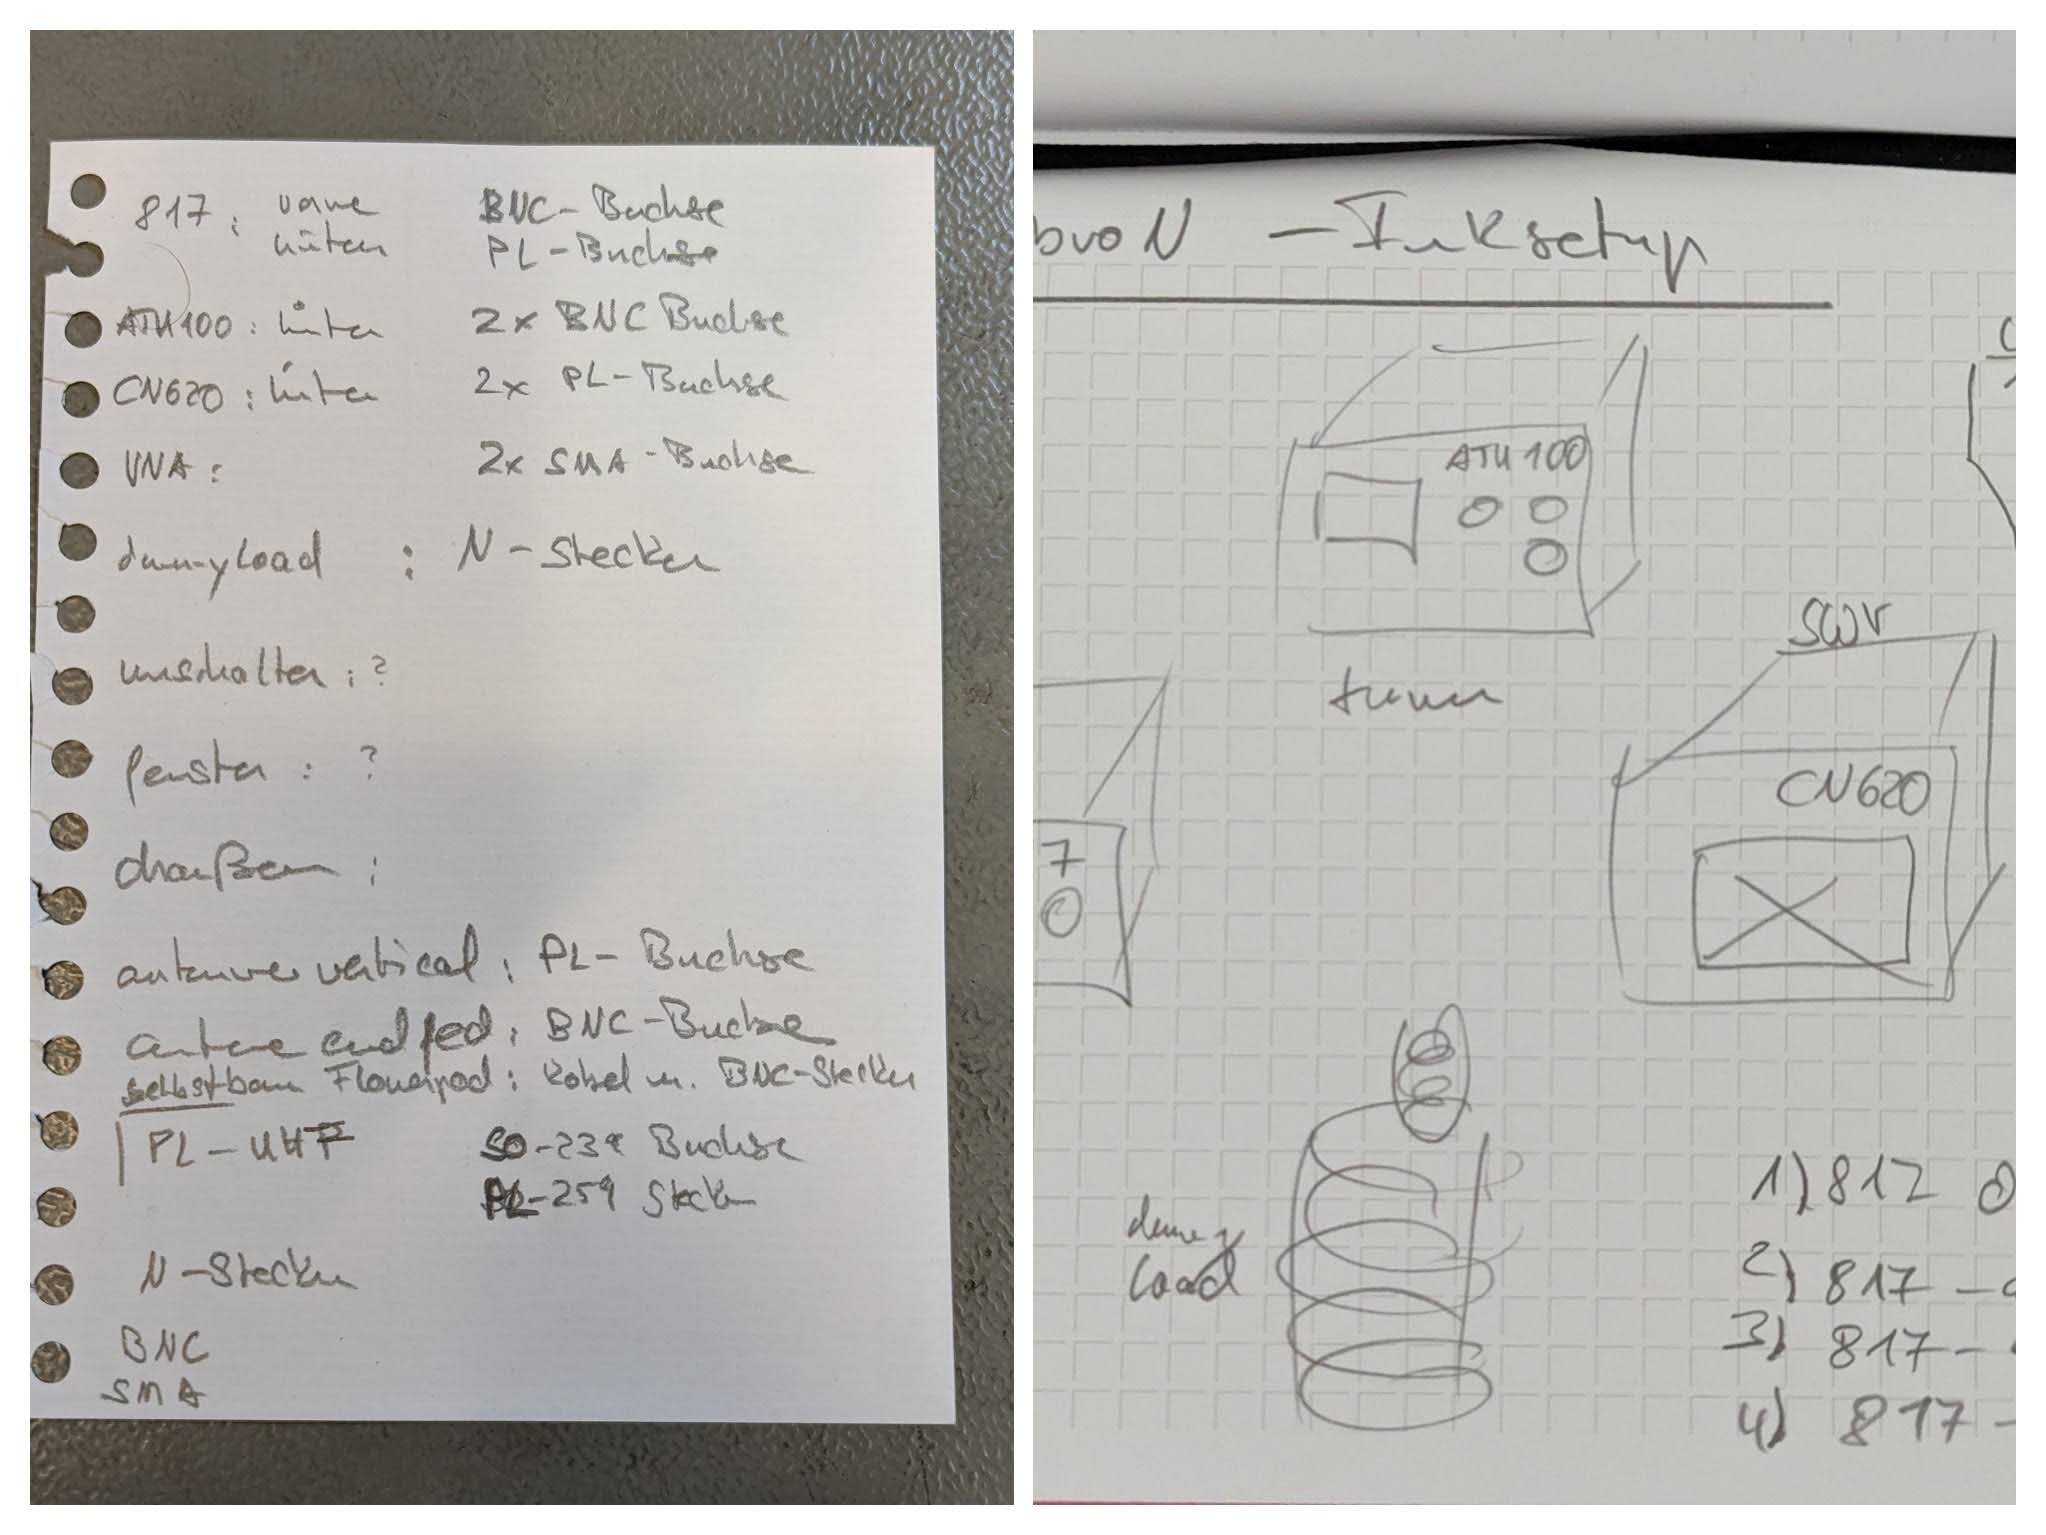 817: vorne BNC-Buchse
hinten PL-Buchse
ATU100: hinten 2x BNC Buchse
CN620: hinten 2x PL-Buchse
VNA: 2x SMA-Buchse
dummyload : N-Stecker
umschalter: ?
fenster: ?
draußen:
antenne vertical: PL-Buchse
antenne endfed: BNC-Buchse
selbstbau Flowerpod: Kabel m. BNC-Stecker
PL-UHF SO-239 Buchse
PL-259 Stecker
N-Stecker
BNC
SMA
ATU100
tuner
SWR
CN620
7
dummy
Load
1) 817
2) 817 -
3) 817 -
4) 817 -